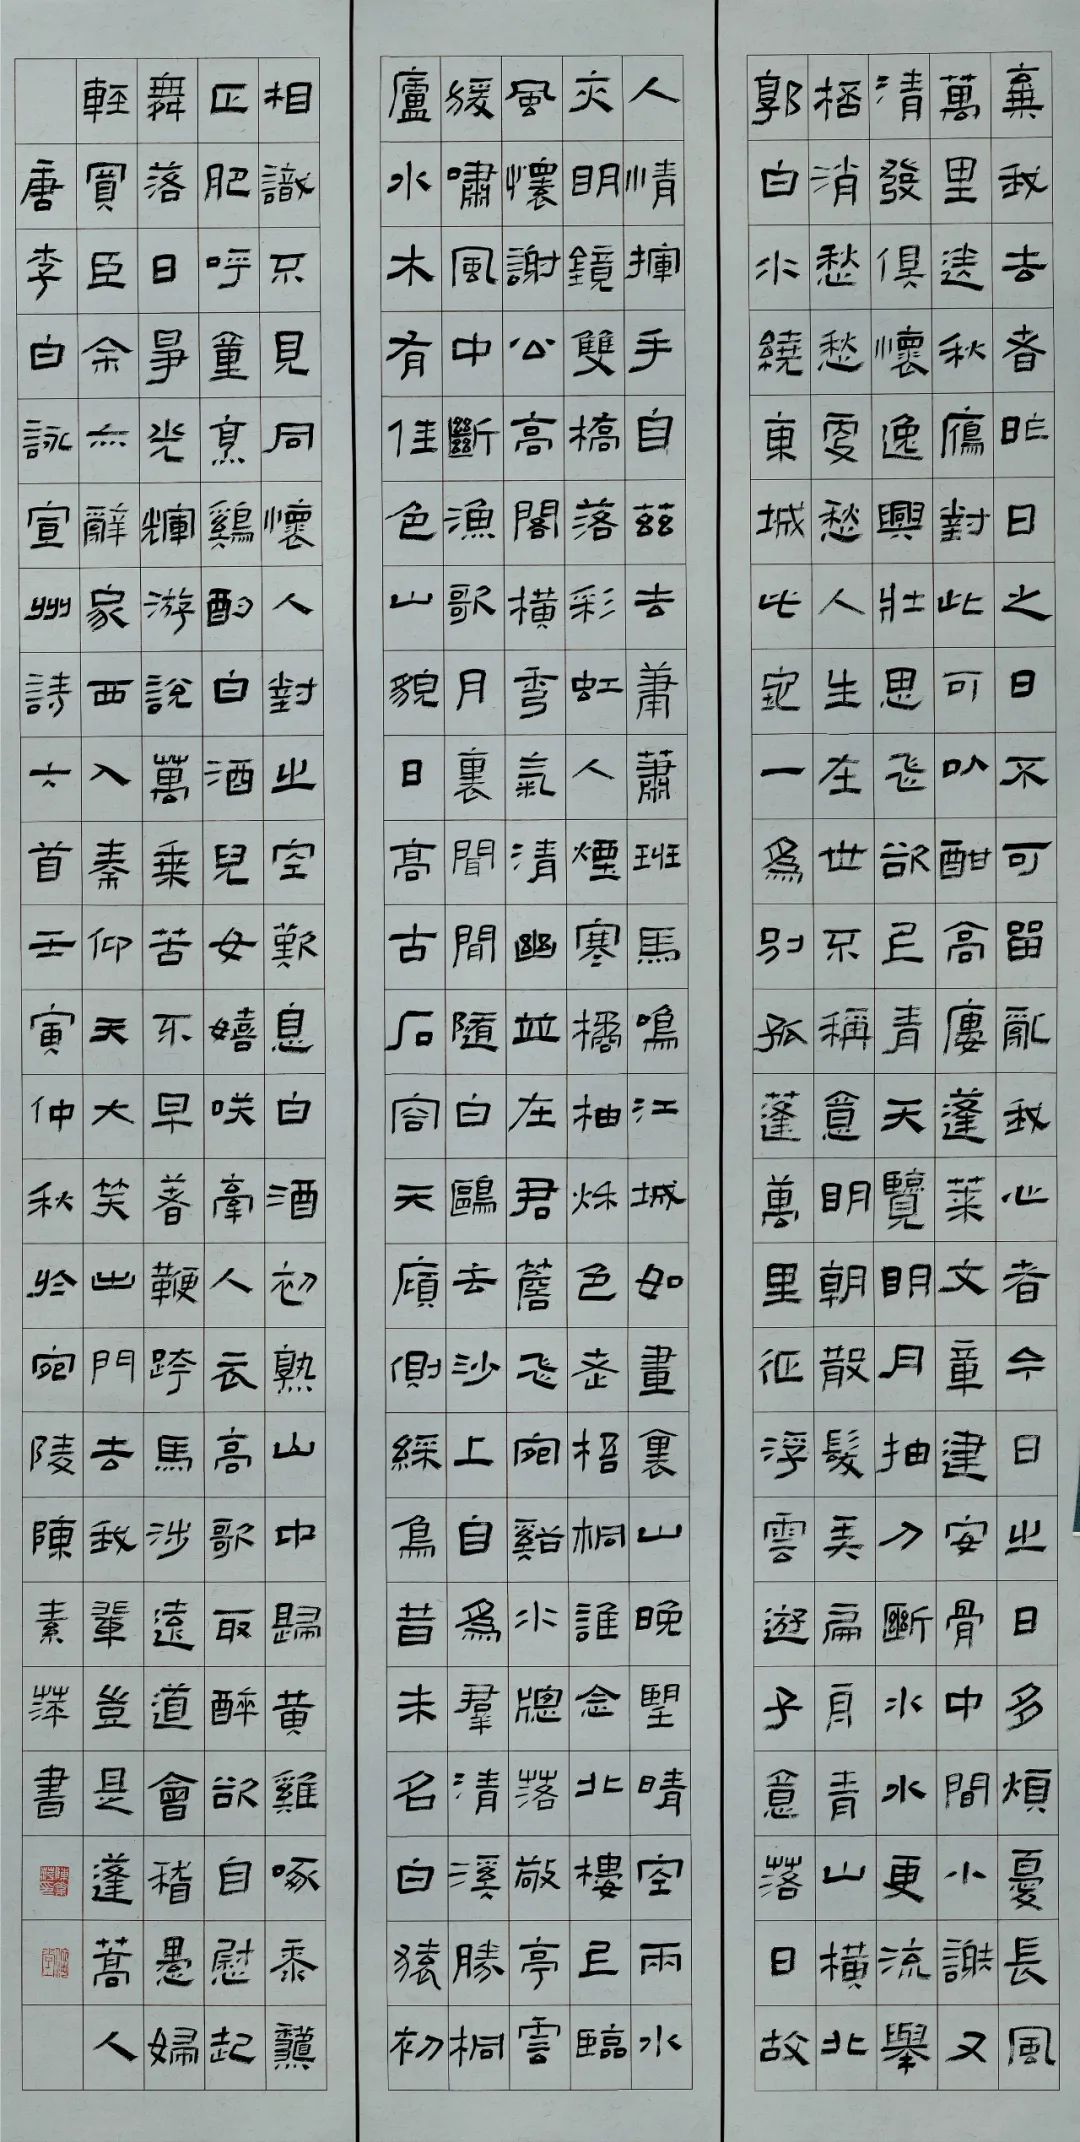 棄我去者昨日之日不可留亂我心者今日之日多煩憂長風
萬里送秋鴈對此可以酣高廔蓬萊文章建安骨中間小謝又
清發俱懷逸興壯思飛欲上青天覽明月抽刀斷水水更流舉
桮消愁愁更愁人生在世不稱意明朝散髮弄扁舟青山橫北
郭白水繞東城此地一為別孤蓬萬里征浮雲遊子意落日故
人情揮手自茲去蕭蕭班馬鳴江城如畫裏山晚望晴空雨水
夾明鏡雙橋落彩虹人煙寒橘柚秋色老梧桐誰念北樓上臨
風懷謝公高閣橫秀氣清幽並在君簷飛宛谿水牕落敬亭雲
猨嘯風中斷漁歌月裏聞閒隨白鷗去沙上自為羣清溪勝桐
廬水木有佳色山貌日高古石容天傾側綵鳥昔未名白猿初
相識不見同懷人對之空歎息白酒初熟山中歸黃雞啄黍龝
正肥呼童烹鷄酌白酒兒女嬉咲牽人衣高歌取醉欲自慰起
舞落日爭光輝游說萬乘苦不早著鞭跨馬涉遠道會稽愚婦
輕買臣余亦辭家西入秦仰天大笑出門去我輩豈是蓬蒿人
唐李白詠宣州詩六首壬寅仲秋於宛陵陳素萍書